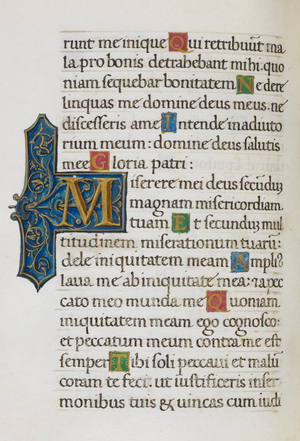 runt me inique Qui retribuūt ma
la pro bonis detrabebant mihi. quo
niam sequebar bonitatem Ne dere
linquas me domine deus meus: ne
discesseris a me Intende in adiuto
rium meum: domine deus salutis
mee Gloria patri:
Miserere mei deus secundū
magnam misericordiam
tuam Et secundū mul
titudinem miserationum tuarū:
dele iniquitatem meam Ampli⁹
laua me ab iniquitate mea: & a pec
cato meo munda me Quoniam
iniquitatem meam ego cognosco:
et peccatum meum contra me est
semper Tibi soli peccaui et malū
coram te feci: ut iustificeris in ser
monibus tuis & uincas cum iudi